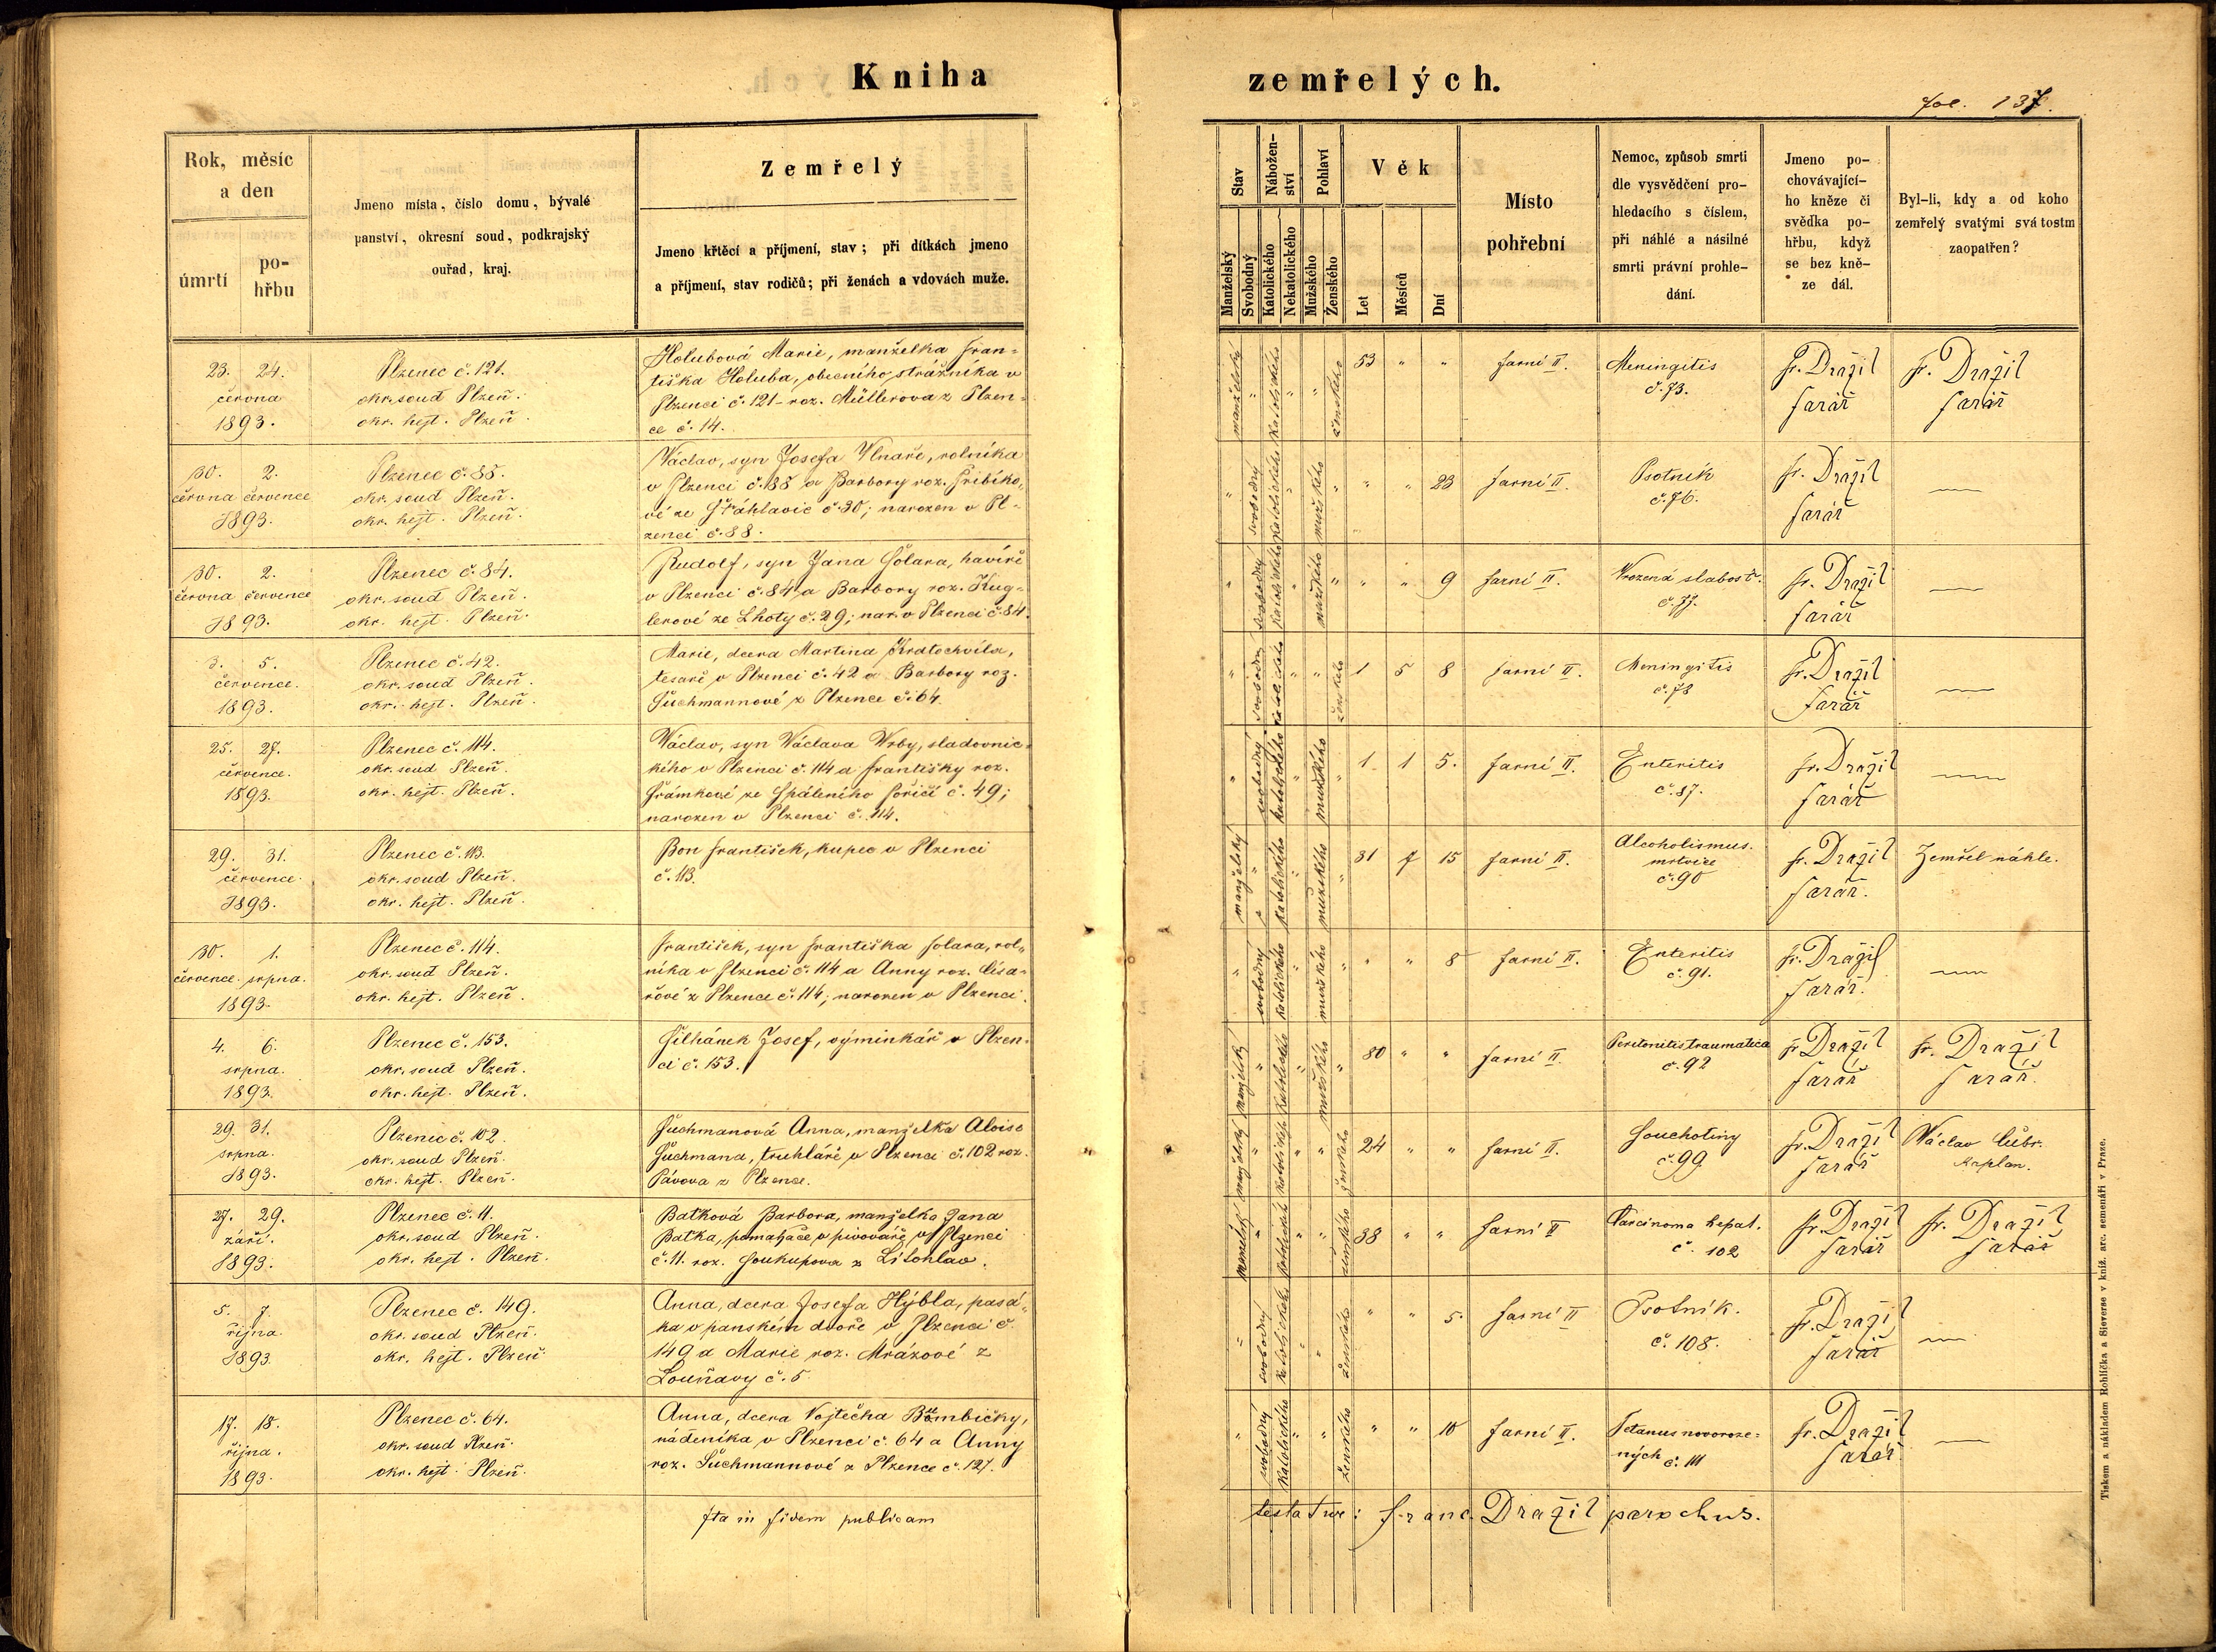 Kniha
zemřelých.
fol. 137.
Rok, měsíc
a den
úmrtí
po-
hřbu
Jmeno místa, číslo domu, bývalé
panství, okresní soud, podkrajský
ouřad, kraj.
Zemřelý
Jmeno křtěcí a příjmení, stav; při dítkách jmeno
a příjmení, stav rodičů; při ženách a vdovách muže.
Stav
Nábožen-
ství
Pohlaví
Věk
Manželský
Svobodný
Katolického
Nekatolického
Mužského
Ženského
Let
Měsíců
Dní
Místo
pohřební
Nemoc, způsob smrti
dle vysvědčení pro-
hledacího s číslem,
při náhlé a násilné
smrti právní prohle-
dání.
Jmeno po-
chovávající-
ho kněze či
svědka po-
hřbu, když
se bez kně-
ze dál.
Byl-li, kdy a od koho
zemřelý svatými svátostm
zaopatřen?
23. 24.
června
1893.
Plzenec č. 121.
okr. soud Plzeň.
okr. hejt. Plzeň.
Holubová Marie, manželka Fran-
tiška Holuba, obecního strážníka v
Plzenci č. 121 - roz. Müllerova z Plzen-
ce č. 14.
manželský " katolického " " ženského
53 " "
farní II.
Meningitis
č. 73.
Fr. Dražil
farář
Fr. Dražil
farář
30. 2.
června července
1893.
Plzenec č. 88.
okr. soud Plzeň.
okr. hejt. Plzeň.
Václav, syn Josefa Vlnaře, rolníka
v Plzenci č. 88 a Barbory roz. Přibíko-
vé ze Šťáhlavic č. 30; narozen v Pl-
zenci č. 88.
" svobodný katolického " mužského "
" " 23
farní II.
Psotník
č. 76.
Fr. Dražil
farář
30. 2.
června července
1893.
Plzenec č. 84.
okr. soud Plzeň.
okr. hejt. Plzeň.
Rudolf, syn Jana Šolara, havíře
v Plzenci č. 84 a Barbory roz. Kug-
lerové ze Lhoty č. 29; nar. v Plzenci č. 84.
" svobodný katolického " mužského "
" " 9
farní II.
Vrozená slabosť.
č. 77.
Fr. Dražil
farář
3. 5.
července.
1893.
Plzenec č. 42.
okr. soud Plzeň.
okr. hejt. Plzeň.
Marie, dcera Martina Kratochvíla,
tesaře v Plzenci č. 42 a Barbory roz.
Šuchmannové z Plzence č. 64.
" svobodný katolického " " ženského
1 5 8
farní II.
Meningitis
č. 78
Fr. Dražil
farář
25. 27.
července.
1893.
Plzenec č. 114.
okr. soud Plzeň.
okr. hejt. Plzeň.
Václav, syn Václava Vrby, sladovnic-
kého v Plzenci č. 114 a Františky roz.
Šrámkové ze Spáleného Poříčí č. 49;
narozen v Plzenci č. 114.
" svobodný katolického " mužského "
1 1 5.
farní II.
Enteritis
č. 87.
Fr. Dražil
farář
29. 31.
července.
1893.
Plzenec č. 113.
okr. soud Plzeň.
okr. hejt. Plzeň.
Bon František, kupec v Plzenci
č. 113.
manželský " katolického " mužského "
31 7 15
farní II.
Alcoholismus.
mrtvice
č. 90
Fr. Dražil
farář.
Zemřel náhle.
30. 1.
července. srpna.
1893.
Plzenec č. 114.
okr. soud Plzeň.
okr. hejt. Plzeň.
František, syn Františka Solara, rol-
níka v Plzenci č. 114 a Anny roz. Císa-
řové z Plzence č. 114; narozen v Plzenci.
" svobodný katolického " mužského "
" " 8
farní II.
Enteritis
č. 91.
Fr. Dražil
farář.
4. 6.
srpna.
1893.
Plzenec č. 153.
okr. soud Plzeň.
okr. hejt. Plzeň.
Šilhánek Josef, výminkář v Plzen-
ci č. 153.
manželský " katolického " mužského "
80 " "
farní II.
Peritonitis traumatica
č. 92
Fr. Dražil
farář
Fr. Dražil
farář.
29. 31.
srpna.
1893.
Plzenec č. 102.
okr. soud Plzeň.
okr. hejt. Plzeň.
Šuchmanová Anna, manželka Aloise
Šuchmana, truhláře v Plzenci č. 102 roz.
Pávova z Plzence.
manželský " katolického " " ženského
24 " "
farní II.
Souchotiny
č. 99.
Fr. Dražil
farář
Václav Cibr.
kaplan.
27. 29.
září.
1893.
Plzenec č. 11.
okr. soud Plzeň.
okr. hejt. Plzeň.
Baťková Barbora, manželka Jana
Baťka, pomahače v pivováře v Plzenci
č. 11. roz. Soukupova z Litohlav.
manželský " katolického " " ženského
38 " "
farní II
Carcinoma hepat.
č. 102
Fr. Dražil
farář
Fr. Dražil
farář
5. 7.
října.
1893
Plzenec č. 149.
okr. soud Plzeň.
okr. hejt. Plzeň.
Anna, dcera Josefa Hýbla, pasá-
ka v panském dvoře v Plzenci č.
149 a Marie roz. Mrázové z
Louňavy č. 5
" svobodný katolického " " ženského
" " 5.
farní II
Psotník.
č. 108.
Fr. Dražil
farář
17. 18.
října.
1893.
Plzenec č. 64.
okr. soud Plzeň.
okr. hejt. Plzeň.
Anna, dcera Vojtěcha
nádeníka v Plzenci č. 64 a Anny
roz. Šuchmannové z Plzence č. 127.
" svobodný katolického " " ženského
" " 10
farní II.
Tetanus novoroze-
ných č. 111
Fr. Dražil
farář.
Ita in fidem publicam
testatur: Franc. Dražil parochus.
Tiskem a nákladem Rohlíčka a Sieverse v kníž. arc. semenáři v Praze.